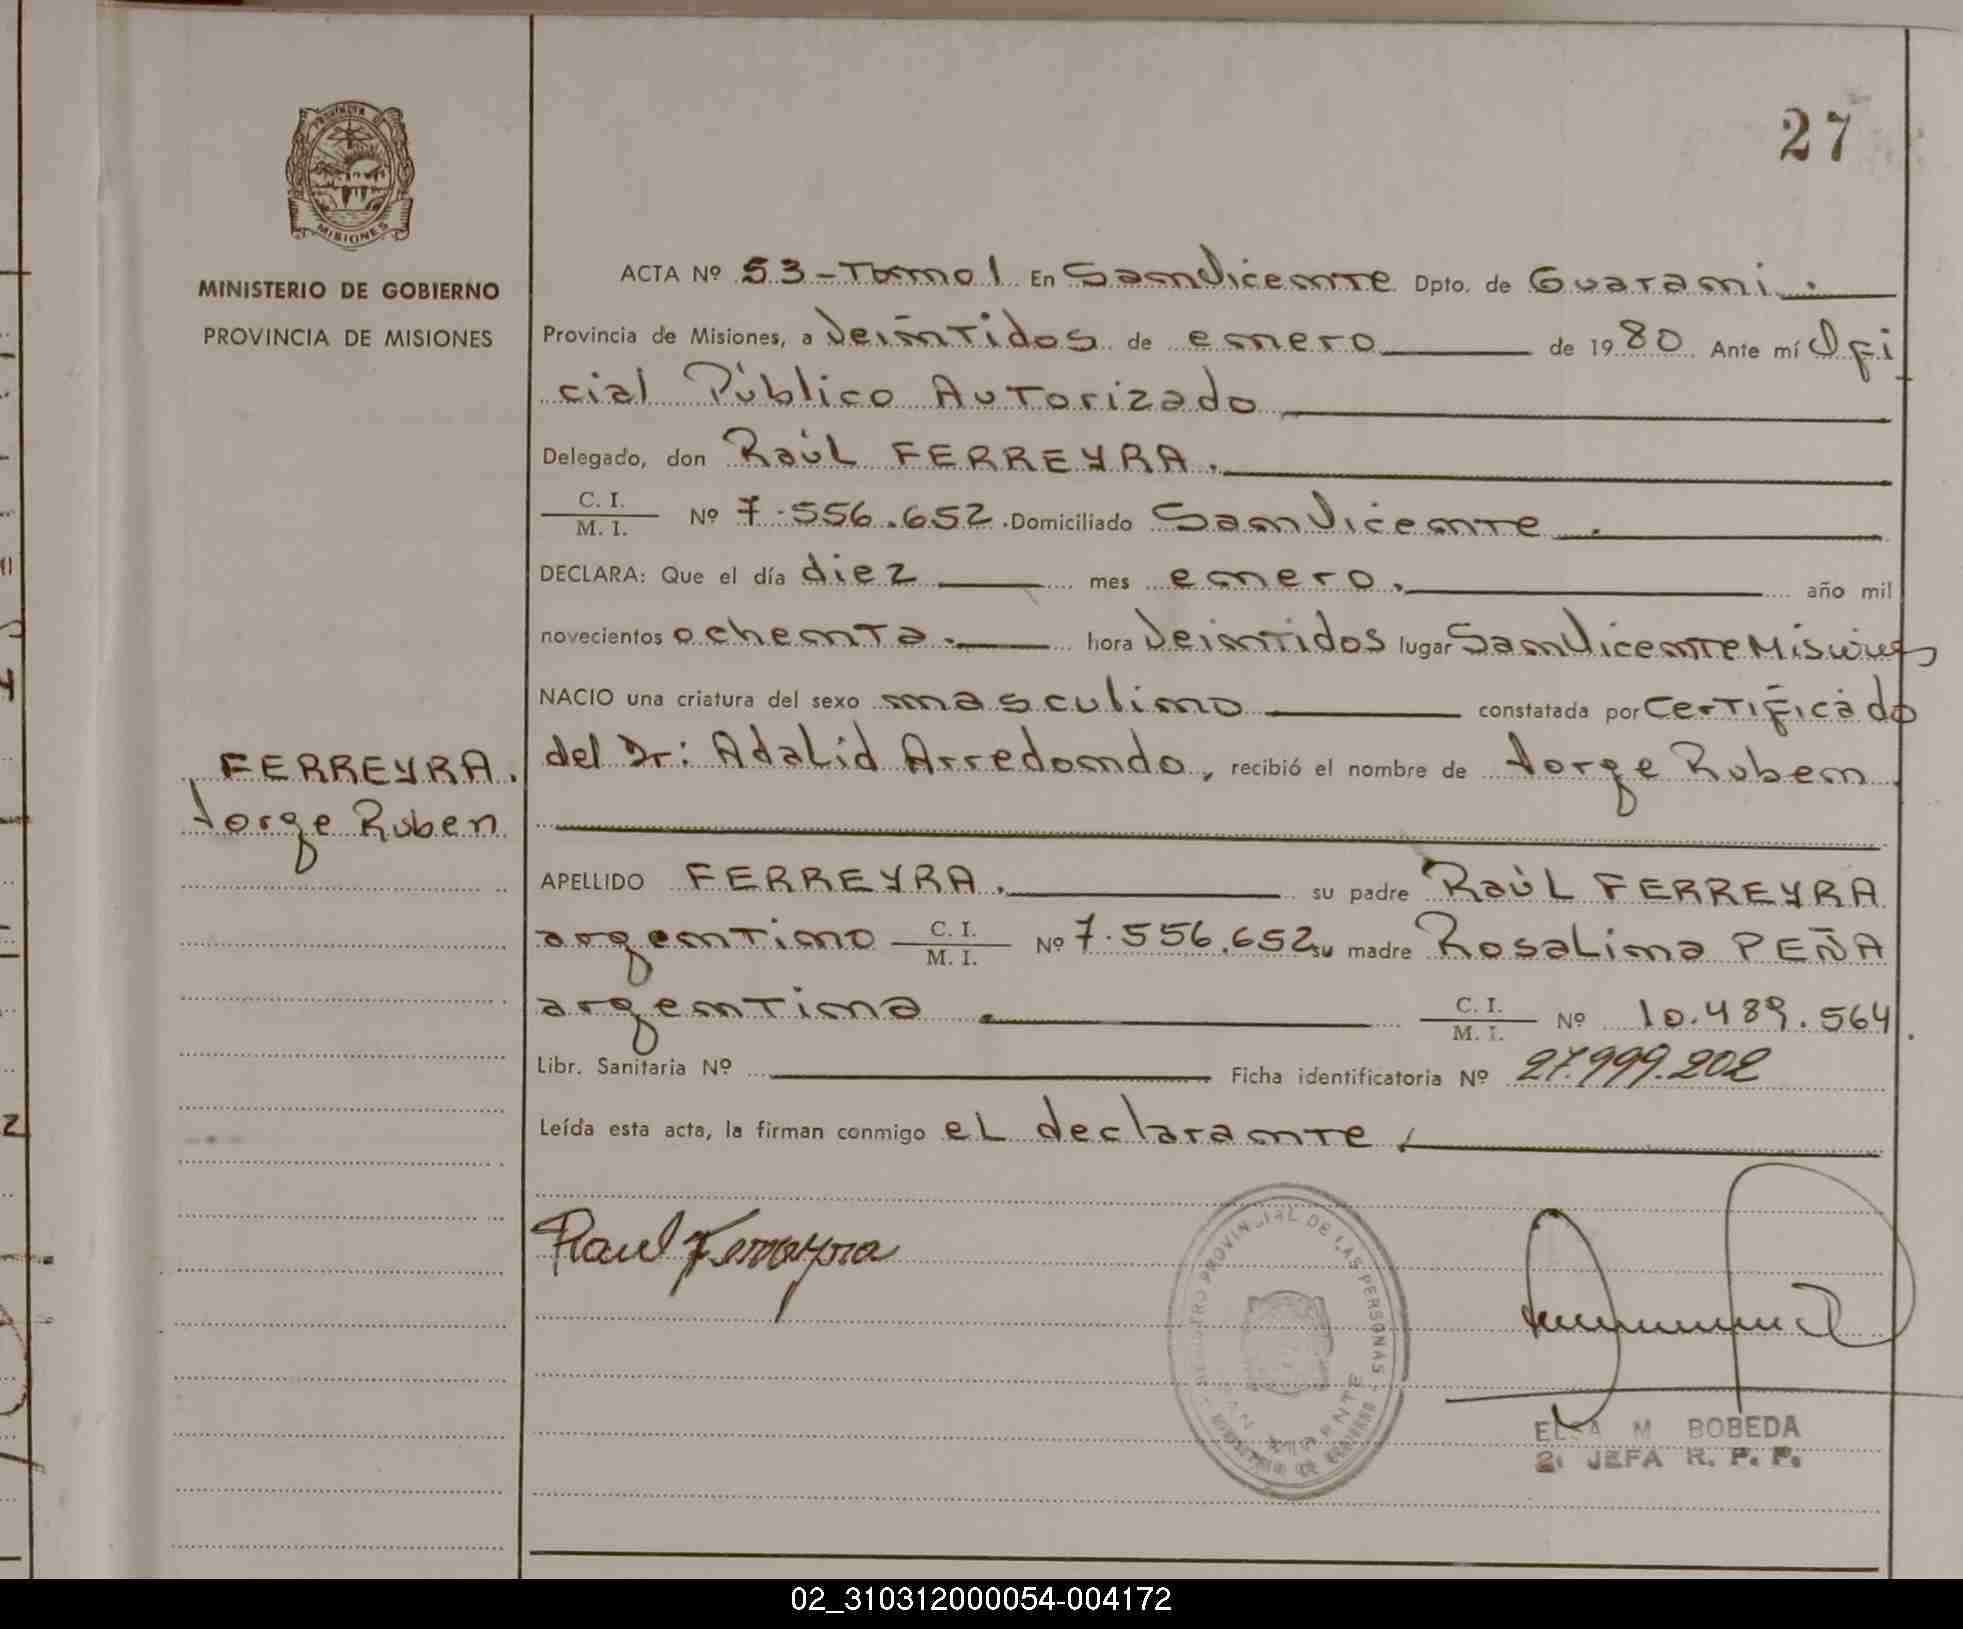 27
PROVINCIA DE
MISIONES
MINISTERIO DE GOBIERNO
PROVINCIA DE MISIONES
FERREYRA.
Jorge Ruben
ACTA Nº 53-Tomo 1 En San Vicente Dpto. de Guaraní.
Provincia de Misiones, a Veintidos de enero de 1980 Ante mí Ofi
cial Público Autorizado
Delegado, don Raúl FERREYRA.
C. I.
M. I. Nº 7.556.652. Domiciliado San Vicente.
DECLARA: Que el día diez mes enero. año mil
novecientos ochenta. hora Veintidos lugar San Vicente Misiones
NACIO una criatura del sexo masculino constatada por certificado
del Dr: Adalid Arredondo, recibió el nombre de Jorge Ruben
APELLIDO FERREYRA. su padre Raúl FERREYRA
argentino C. I. M. I. Nº 7.556.652 su madre Rosalina PEÑA
argentina. C. I. M. I. Nº 10.489.564.
Libr. Sanitaria Nº Ficha identificatoria Nº 27.999.202
Leída esta acta, la firman conmigo eL declarante,
Raul Ferreyra
REGISTRO PROVINCIAL DE LAS PERSONAS
SAN VICENTE
MINISTERIO DE GOBIERNO
ELSA M BOBEDA
2ª JEFA R. P. P.
02_310312000054-004172